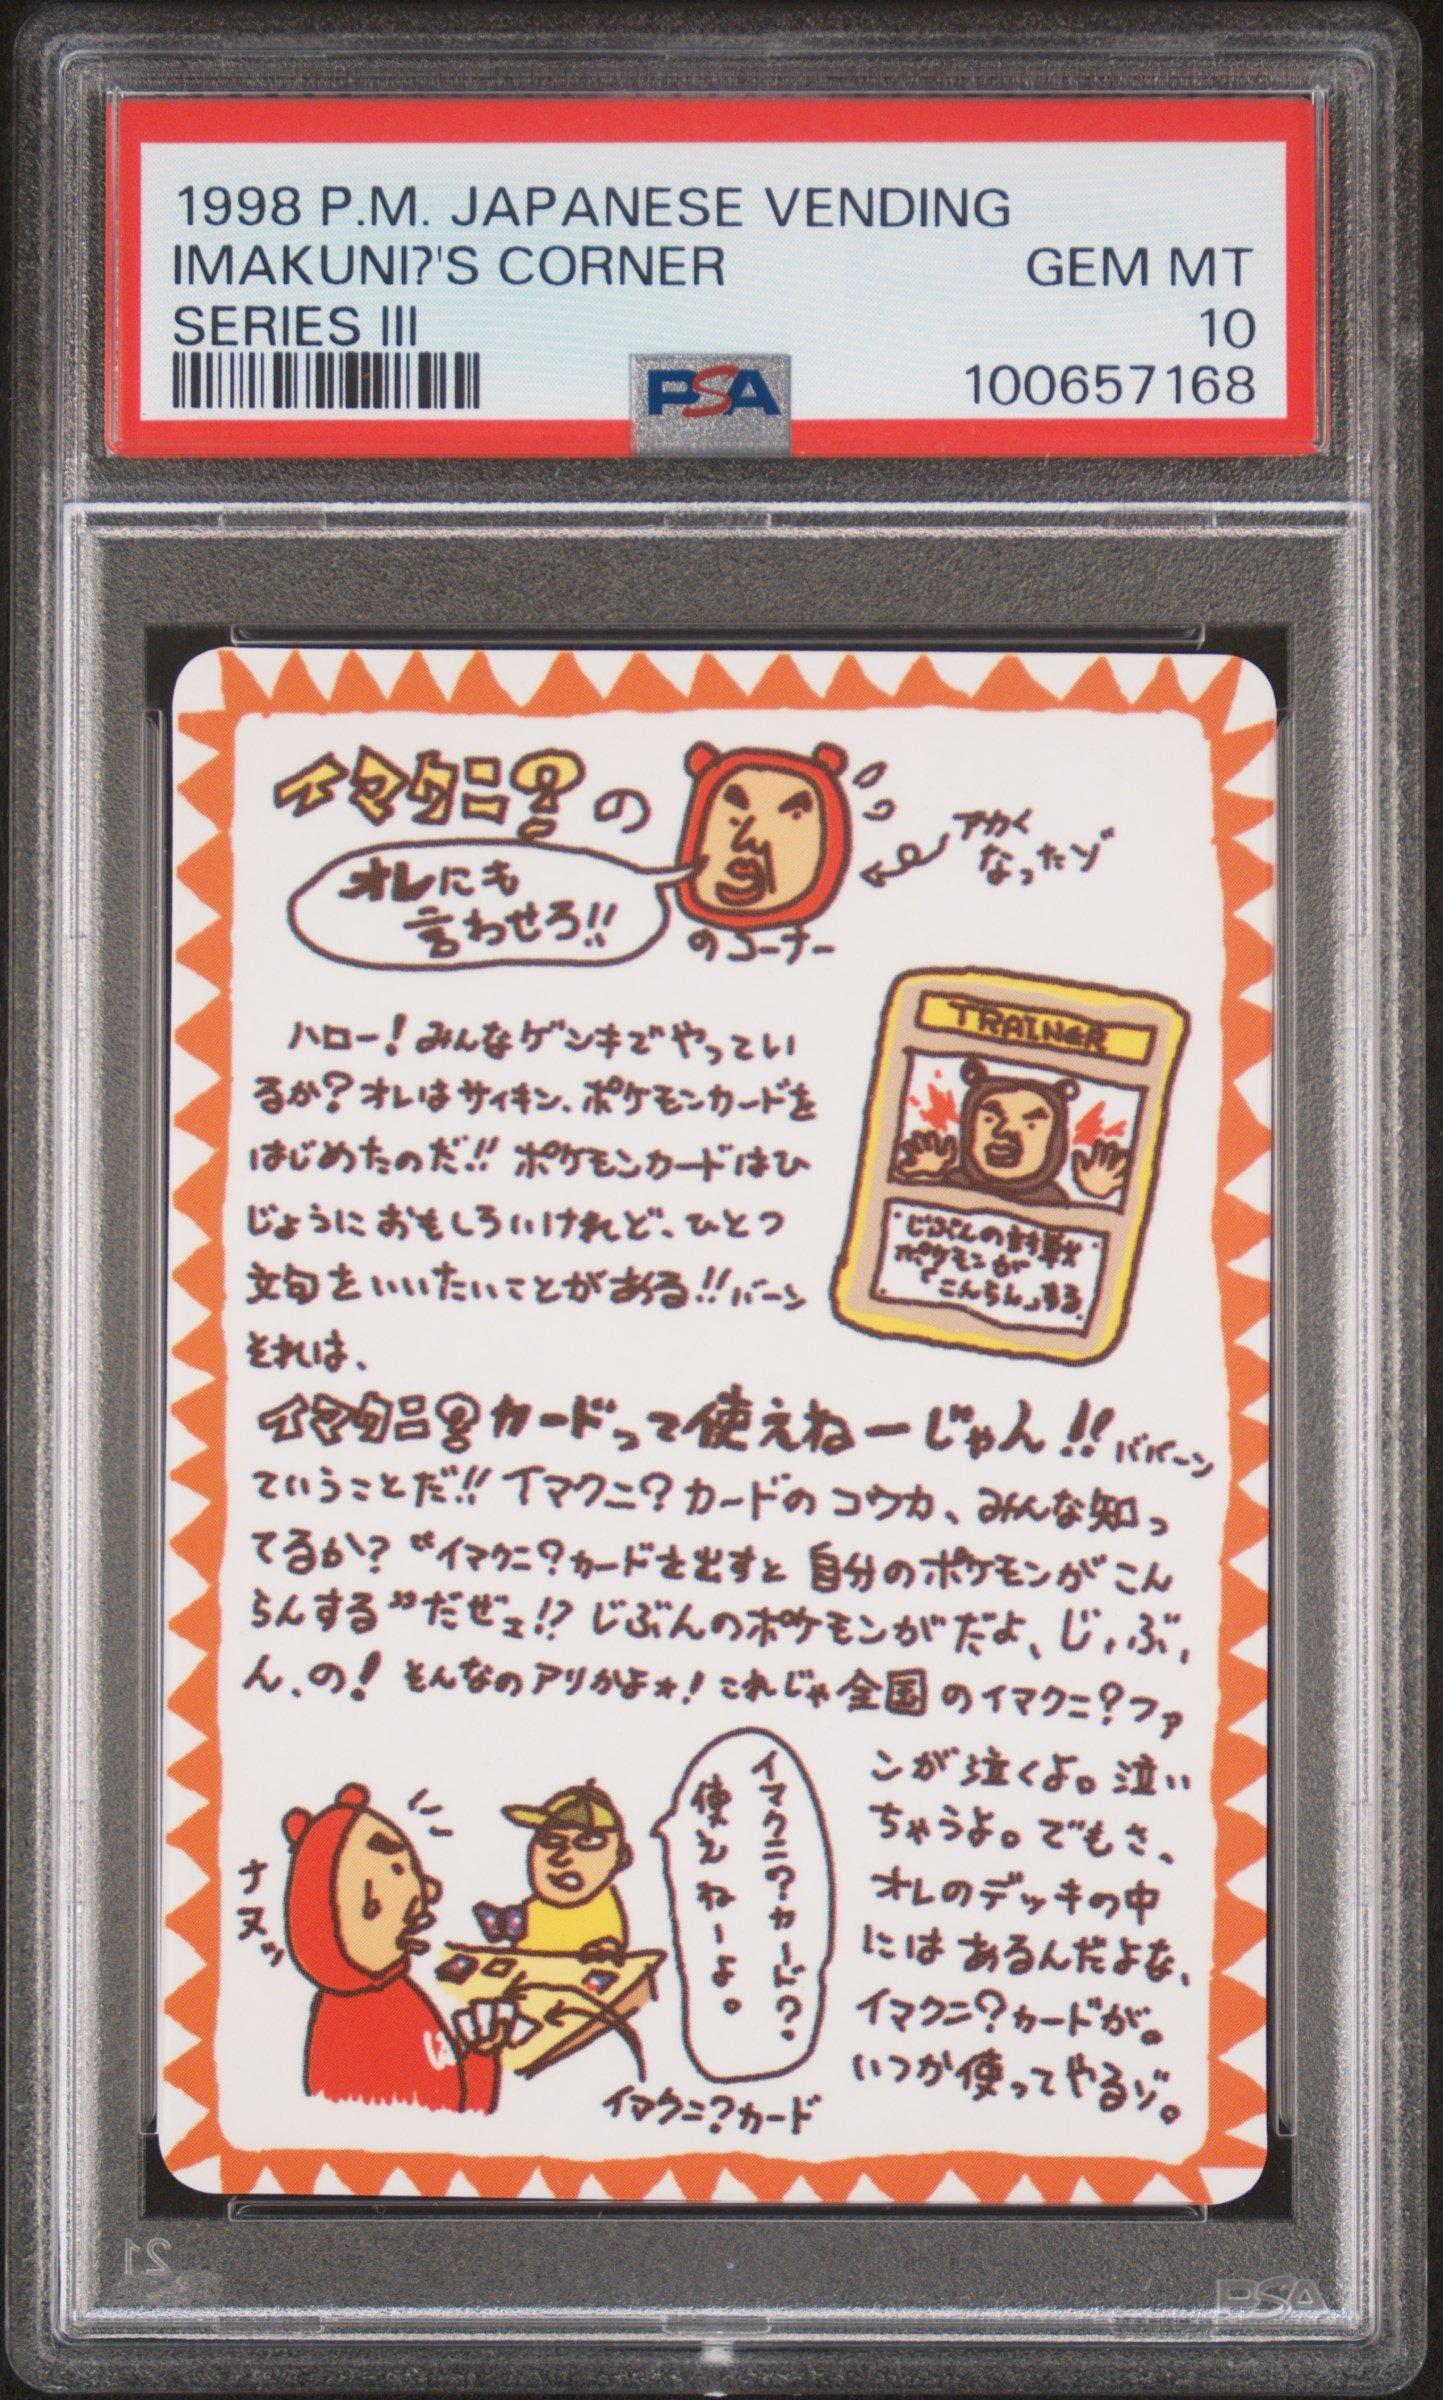 1998 P.M. JAPANESE VENDING
IMAKUNI?'S CORNER
GEM MT
SERIES III
10
PSA
100657168
イマクニ?の
オレにも
言わせろ!!
のコーナー
アカく
なったゾ
ハロー!みんなゲンキでやってい
るか?オレはサイキン、ポケモンカードを
はじめたのだ!!ポケモンカードはひ
じょうにおもしろいけれど、ひとつ
文句をいいたいことがある!!バーン
それは、
TRAINER
・じぶんの対戦
ポケモンが
「こんらん」する.
イマクニ?カードって使えねーじゃん!!ババーン
ていうことだ!!イマクニ?カードのコウカ、みんな知っ
てるか?“イマクニ?カードを出すと自分のポケモンがこん
らんする”だぜェ!?じぶんのポケモンがだよ、じ,ぶ,
ん、の!そんなのアリかよォ!これじゃ全国のイマクニ?ファ
ンが泣くよ。泣い
ちゃうよ。でもさ、
オレのデッキの中
にはあるんだよな、
イマクニ?カードが。
いつか使ってやるゾ。
ナヌッ
イマクニ?カード?
使えねーよ。
イマクニ?カード
21
PSA